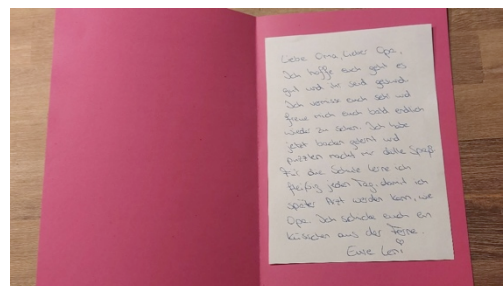 Liebe Oma, Lieber Opa,
Ich hoffe euch geht es
gut und ihr seid gesund.
Ich vermisse euch sehr und
freue mich euch bald endlich
wieder zu sehen. Ich habe
jetzt backen gelernt und
puzzlen macht mir dolle Spaß.
Für die Schule lerne ich
fleißig jeden Tag, damit ich
später Arzt werden kann, wie
Opa. Ich schicke euch ein
Küsschen aus der Ferne.
Eure Leni